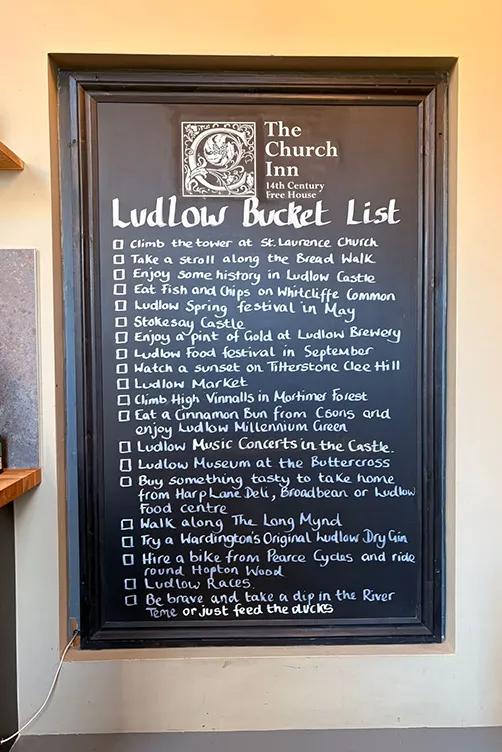 The
Church
Inn
14th Century
Free House
Ludlow Bucket List
Climb the tower at St. Laurence Church
Take a stroll along the Bread Walk
Enjoy some history in Ludlow Castle
Eat Fish and Chips on Whitcliffe Common
Ludlow Spring festival in May
Stokesay Castle
Enjoy a pint of Gold at Ludlow Brewery
Ludlow Food festival in September
Watch a sunset on Titterstone Clee Hill
Ludlow Market
Climb High Vinnalls in Mortimer Forest
Eat a Cinnamon Bun from Csons and
enjoy Ludlow Millennium Green
Ludlow Music Concerts in the Castle.
Ludlow Museum at the Buttercross
Buy something tasty to take home
from Harp Lane Deli, Broadbean or Ludlow
Food centre
Walk along The Long Mynd
Try a Wardington's Original Ludlow Dry Gin
Hire a bike from Pearce Cycles and ride
round Hopton Wood
Ludlow Races
Be brave and take a dip in the River
Teme or just feed the ducks